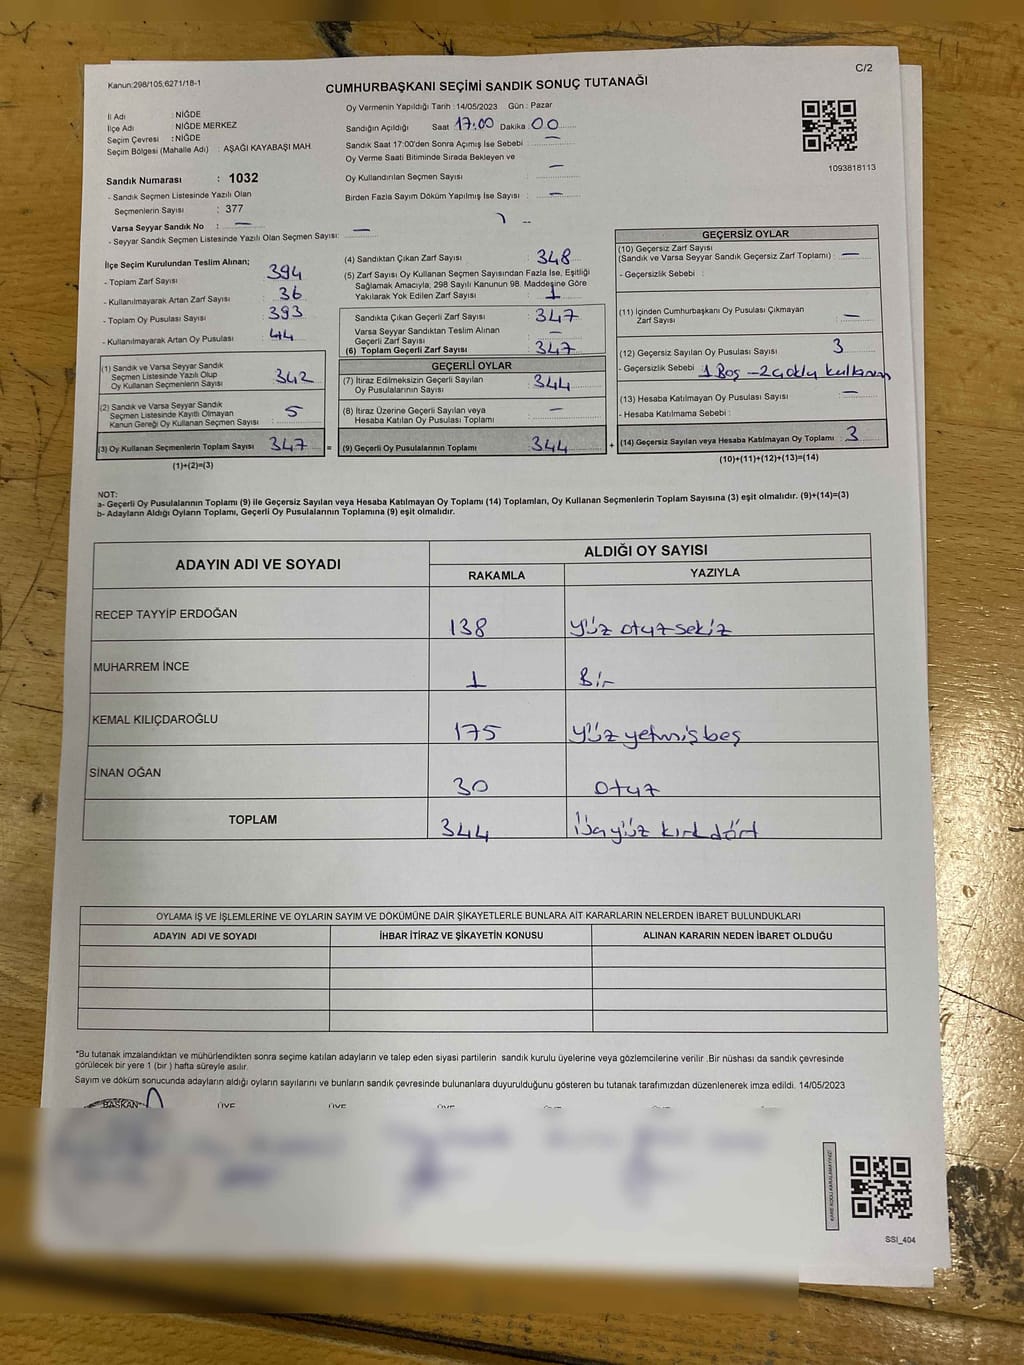 Kanun:298/105,6271/18-1
C/2
CUMHURBAŞKANI SEÇİMİ SANDIK SONUÇ TUTANAĞI
İl Adı : NİĞDE
İlçe Adı : NİĞDE MERKEZ
Seçim Çevresi : NİĞDE
Seçim Bölgesi (Mahalle Adı) : AŞAĞI KAYABAŞI MAH.
Oy Vermenin Yapıldığı Tarih :14/05/2023 Gün : Pazar
Sandığın Açıldığı Saat 17:00 Dakika 00
Sandık Saat 17:00'den Sonra Açımış İse Sebebi : —
Oy Verme Saati Bitiminde Sırada Bekleyen ve
Oy Kullandırılan Seçmen Sayısı : —
Birden Fazla Sayım Döküm Yapılmış İse Sayısı : —
1093818113
Sandık Numarası : 1032
- Sandık Seçmen Listesinde Yazılı Olan
Seçmenlerin Sayısı : 377
Varsa Seyyar Sandık No : —
- Seyyar Sandık Seçmen Listesinde Yazılı Olan Seçmen Sayısı: —
İlçe Seçim Kurulundan Teslim Alınan;
- Toplam Zarf Sayısı : 394
- Kullanılmayarak Artan Zarf Sayısı : 36
- Toplam Oy Pusulası Sayısı : 393
- Kullanılmayarak Artan Oy Pusulası : 44
(1) Sandık ve Varsa Seyyar Sandık
Seçmen Listesinde Yazılı Olup
Oy Kullanan Seçmenlerin Sayısı : 342
(2) Sandık ve Varsa Seyyar Sandık
Seçmen Listesinde Kayıtlı Olmayan
Kanun Gereği Oy Kullanan Seçmen Sayısı : 5
(3) Oy Kullanan Seçmenlerin Toplam Sayısı : 347 =
(1)+(2)=(3)
(4) Sandıktan Çıkan Zarf Sayısı : 348
(5) Zarf Sayısı Oy Kullanan Seçmen Sayısından Fazla İse, Eşitliği
Sağlamak Amacıyla, 298 Sayılı Kanunun 98. Maddesine Göre
Yakılarak Yok Edilen Zarf Sayısı : 1
Sandıkta Çıkan Geçerli Zarf Sayısı : 347
Varsa Seyyar Sandıktan Teslim Alınan
Geçerli Zarf Sayısı : —
(6) Toplam Geçerli Zarf Sayısı : 347
GEÇERLİ OYLAR
(7) İtiraz Edilmeksizin Geçerli Sayılan
Oy Pusulalarının Sayısı : 344
(8) İtiraz Üzerine Geçerli Sayılan veya
Hesaba Katılan Oy Pusulası Toplamı : —
(9) Geçerli Oy Pusulalarının Toplamı : 344 +
GEÇERSİZ OYLAR
(10) Geçersiz Zarf Sayısı
(Sandık ve Varsa Seyyar Sandık Geçersiz Zarf Toplamı) : —
- Geçersizlik Sebebi :
(11) İçinden Cumhurbaşkanı Oy Pusulası Çıkmayan
Zarf Sayısı : —
(12) Geçersiz Sayılan Oy Pusulası Sayısı : 3
- Geçersizlik Sebebi : 1 Boş - 2 çoklu kullanım
(13) Hesaba Katılmayan Oy Pusulası Sayısı : —
- Hesaba Katılmama Sebebi :
(14) Geçersiz Sayılan veya Hesaba Katılmayan Oy Toplamı : 3
(10)+(11)+(12)+(13)=(14)
NOT:
a- Geçerli Oy Pusulalarının Toplamı (9) ile Geçersiz Sayılan veya Hesaba Katılmayan Oy Toplamı (14) Toplamları, Oy Kullanan Seçmenlerin Toplam Sayısına (3) eşit olmalıdır. (9)+(14)=(3)
b- Adayların Aldığı Oyların Toplamı, Geçerli Oy Pusulalarının Toplamına (9) eşit olmalıdır.
ADAYIN ADI VE SOYADI
ALDIĞI OY SAYISI
RAKAMLA YAZIYLA
RECEP TAYYİP ERDOĞAN 138 yüz otuz sekiz
MUHARREM İNCE 1 Bir
KEMAL KILIÇDAROĞLU 175 yüz yetmiş beş
SİNAN OĞAN 30 otuz
TOPLAM 344 üçyüz kırk dört
OYLAMA İŞ VE İŞLEMLERİNE VE OYLARIN SAYIM VE DÖKÜMÜNE DAİR ŞİKAYETLERLE BUNLARA AİT KARARLARIN NELERDEN İBARET BULUNDUKLARI
ADAYIN ADI VE SOYADI İHBAR İTİRAZ VE ŞİKAYETİN KONUSU ALINAN KARARIN NEDEN İBARET OLDUĞU
*Bu tutanak imzalandıktan ve mühürlendikten sonra seçime katılan adayların ve talep eden siyasi partilerin sandık kurulu üyelerine veya gözlemcilerine verilir .Bir nüshası da sandık çevresinde
görülecek bir yere 1 (bir ) hafta süreyle asılır.
Sayım ve döküm sonucunda adayların aldığı oyların sayılarını ve bunların sandık çevresinde bulunanlara duyurulduğunu gösteren bu tutanak tarafımızdan düzenlenerek imza edildi. 14/05/2023
BAŞKAN ÜYE ÜYE ÜYE
KARE KODU KARALAMAYINIZ!
SSI_404